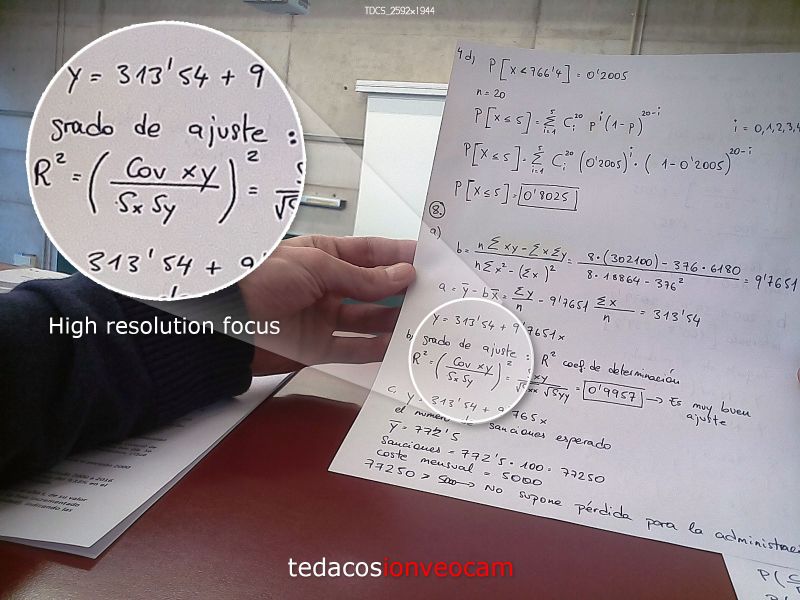 TDCS_2592x1944
y = 313'54 + 9
grado de ajuste :
R² = (Cov xy / Sx Sy)² =
313'54 + 9
High resolution focus
4 d)
P[X < 766'4] = 0'2005
n = 20
P[X ≤ 5] = Σ(i=1, 5) C_i^20 p^i (1-p)^20-i i = 0,1,2,3,4
P[X ≤ 5] = Σ(i=1, 5) C_i^20 (0'2005)^i · (1-0'2005)^20-i
P[X ≤ 5] = 0'8025
8.
a)
b = (n Σxy - Σx Σy) / (n Σx² - (Σx)²) = (8·(302100) - 376·6180) / (8·18864 - 376²) = 9'7651
a = ȳ - b x̄ = Σy / n - 9'7651 Σx / n = 313'54
y = 313'54 + 9'7651x
b) grado de ajuste : R² coef. de determinación
R² = (Cov xy / Sx Sy)² = = 0'9957 → Es muy buen ajuste
c) y = 313'54 + 9'765x
el número de sanciones esperado
ŷ = 772'5
Sanciones = 772'5 · 100 = 77250
coste mensual = 5000
77250 > 5000 → No supone pérdida para la administrac
tedacosionveocam